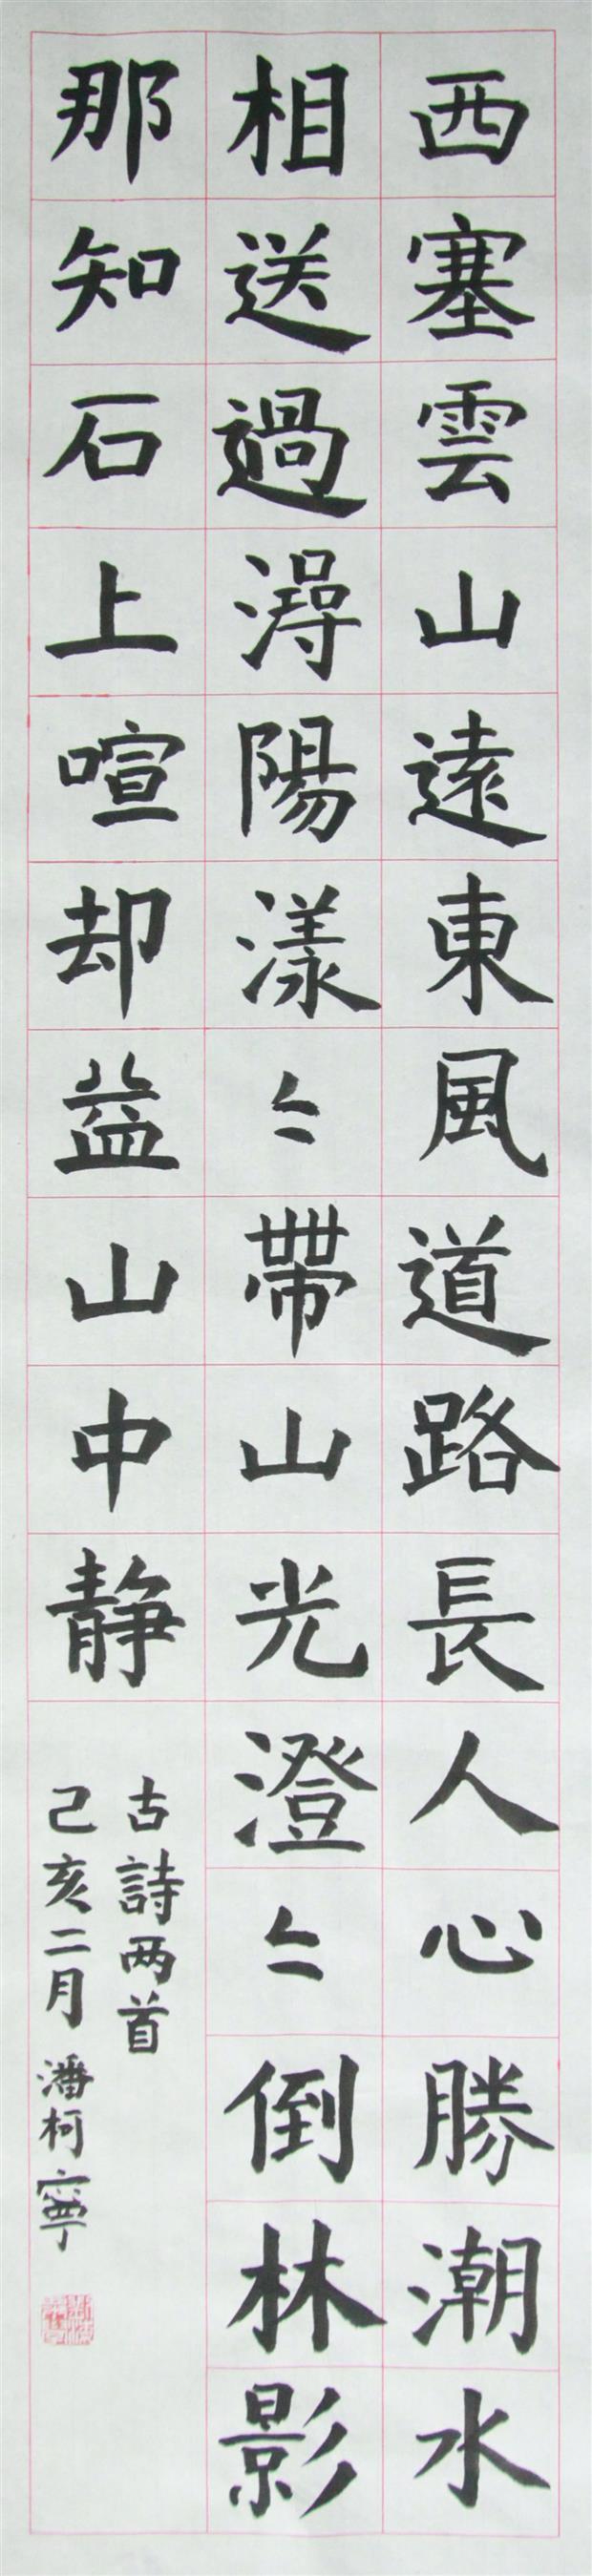 西塞雲山遠東風道路長人心勝潮水
相送過潯陽漾〻帶山光澄〻倒林影
那知石上喧却益山中静
古詩两首
己亥二月潘柯寧